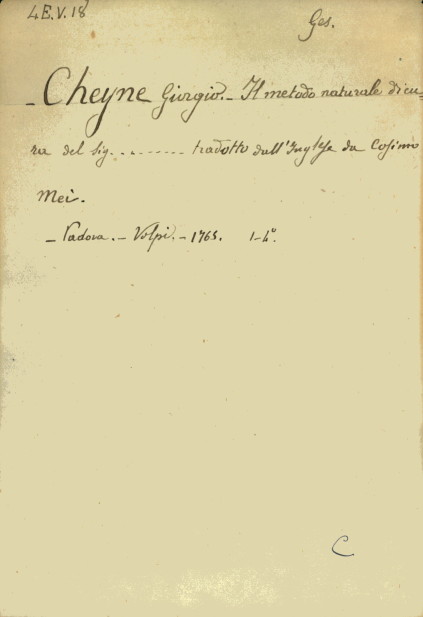 4E.V.18
Ges.
- Cheyne Giorgio. - Il metodo naturale di cu=
ra del sig. . ........ tradotto dall'Inglese da Cosimo
Mei.
- Padova. - Volpi. - 1765. 1-4°.
C